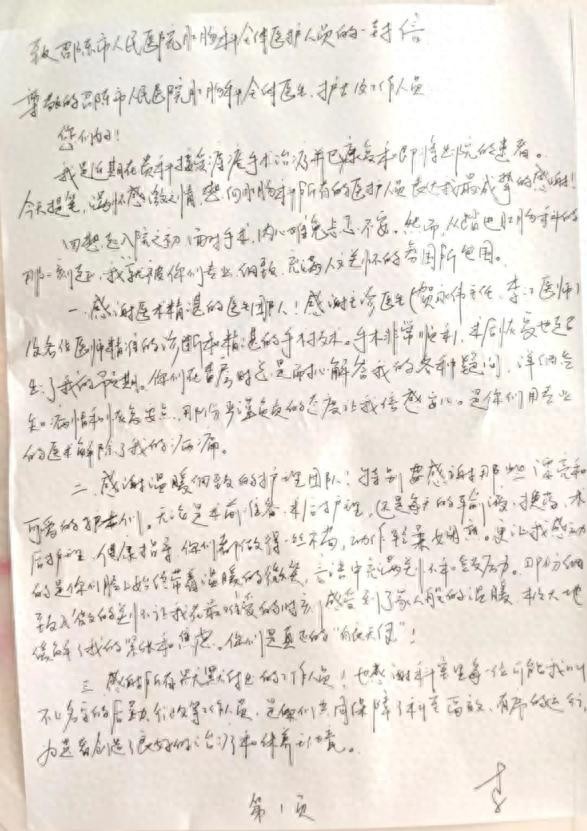 致邵东市人民医院肛肠科全体医护人员的一封信
尊敬的邵东市人民医院肛肠科全体医生、护士及工作人员
您们好!
我是近期在贵科接受痔疮手术治疗并已康复和即将出院的患者。
今天提笔,满怀感激之情,想向肛肠科所有的医护人员表达我最诚挚的感谢!
回想起入院之初,面对手术,内心难免忐忑不安。然而,从踏进肛肠科的
那一刻起,我就被你们专业、细致、充满人文关怀的氛围所包围。
一、感谢医术精湛的医生团队!感谢主诊医生(贺永伟主任、李江医师)
及各位医师精准的诊断和精湛的手术技术。手术非常顺利,术后恢复也超
出了我的预期。你们在查房时总是耐心解答我的各种疑问,详细告
知病情和恢复要点,用份严谨负责的态度让我倍感安心。是你们用专业
的医术解除了我的病痛。
二、感谢温暖细致的护理团队!特别要感谢那些漂亮和
可爱的护士们。无论是术前准备、术后护理,还是每天的输液、换药、术
后护理、健康指导,你们都做得一丝不苟,动作轻柔娴熟。更让我感动
的是你们脸上始终带着温暖的微笑,言语中充满关怀和鼓励。那份细
致入微的关怀让我在最难受的时刻,感受到了家人般的温暖,极大地
缓解了我的紧张和焦虑。你们是真正的“白衣天使”!
三、感谢所有默默付出的工作人员!也感谢科室里每一位可能我叫
不出名字的后勤、行政等工作人员,是你们共同保障了科室高效、有序的运行,
为患者创造了良好的治疗和休养环境。
第1页